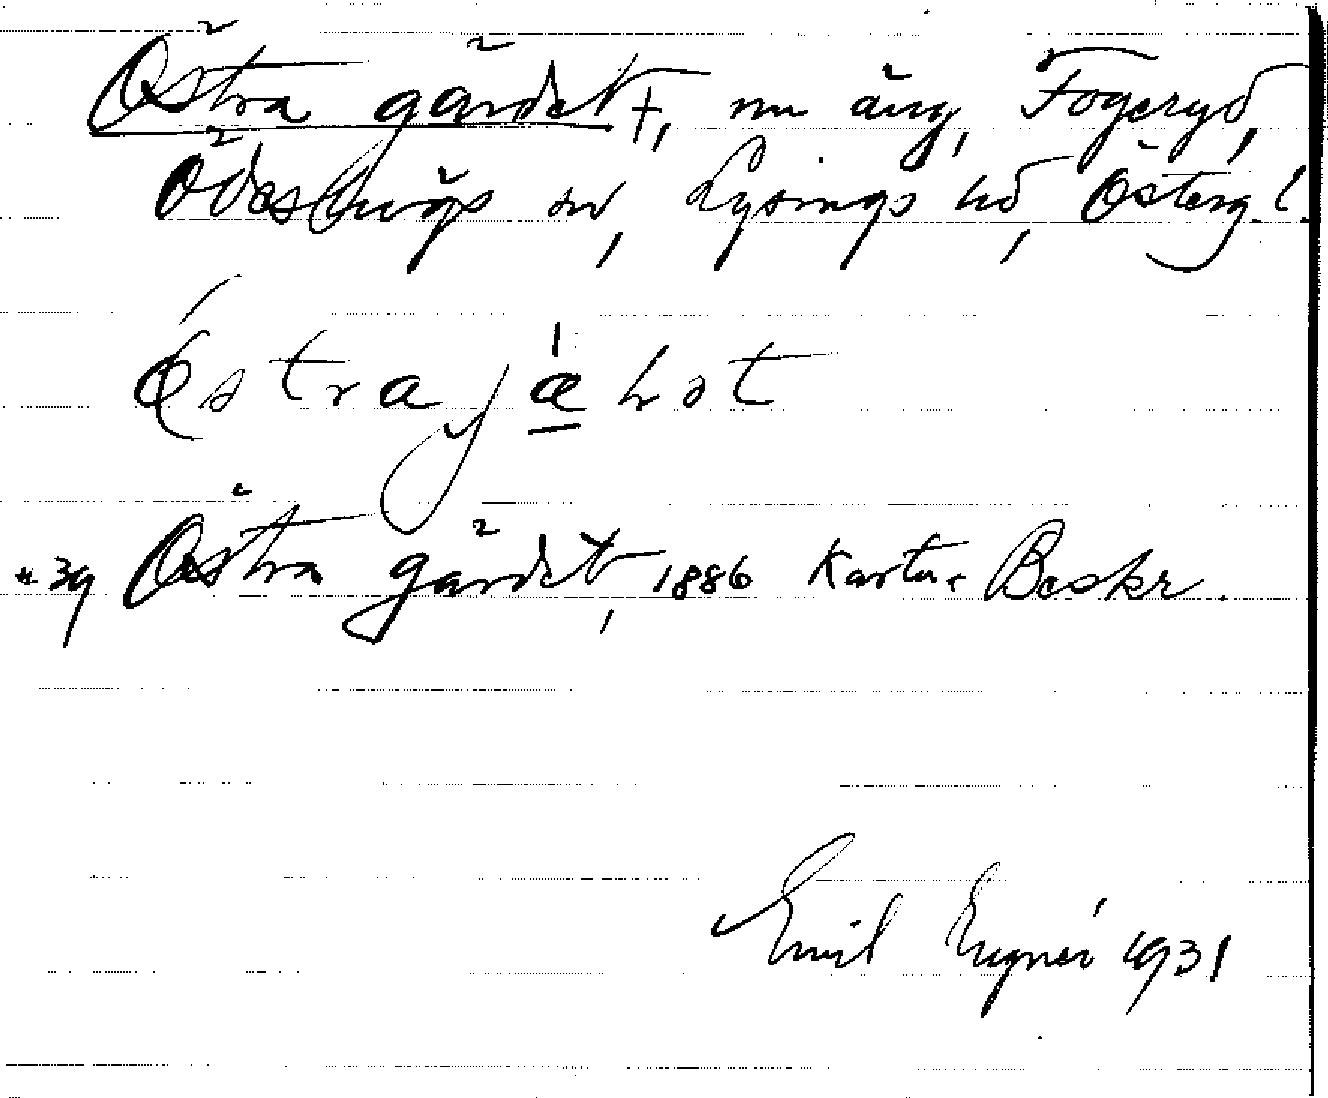 Östra gärdet †, nu äng, Fogeryd,
Ödeshögs sn, Lysings hd, Österg. l.
Östra gärdet, 1886 Karta o Beskr.
Emil Engnér 1931